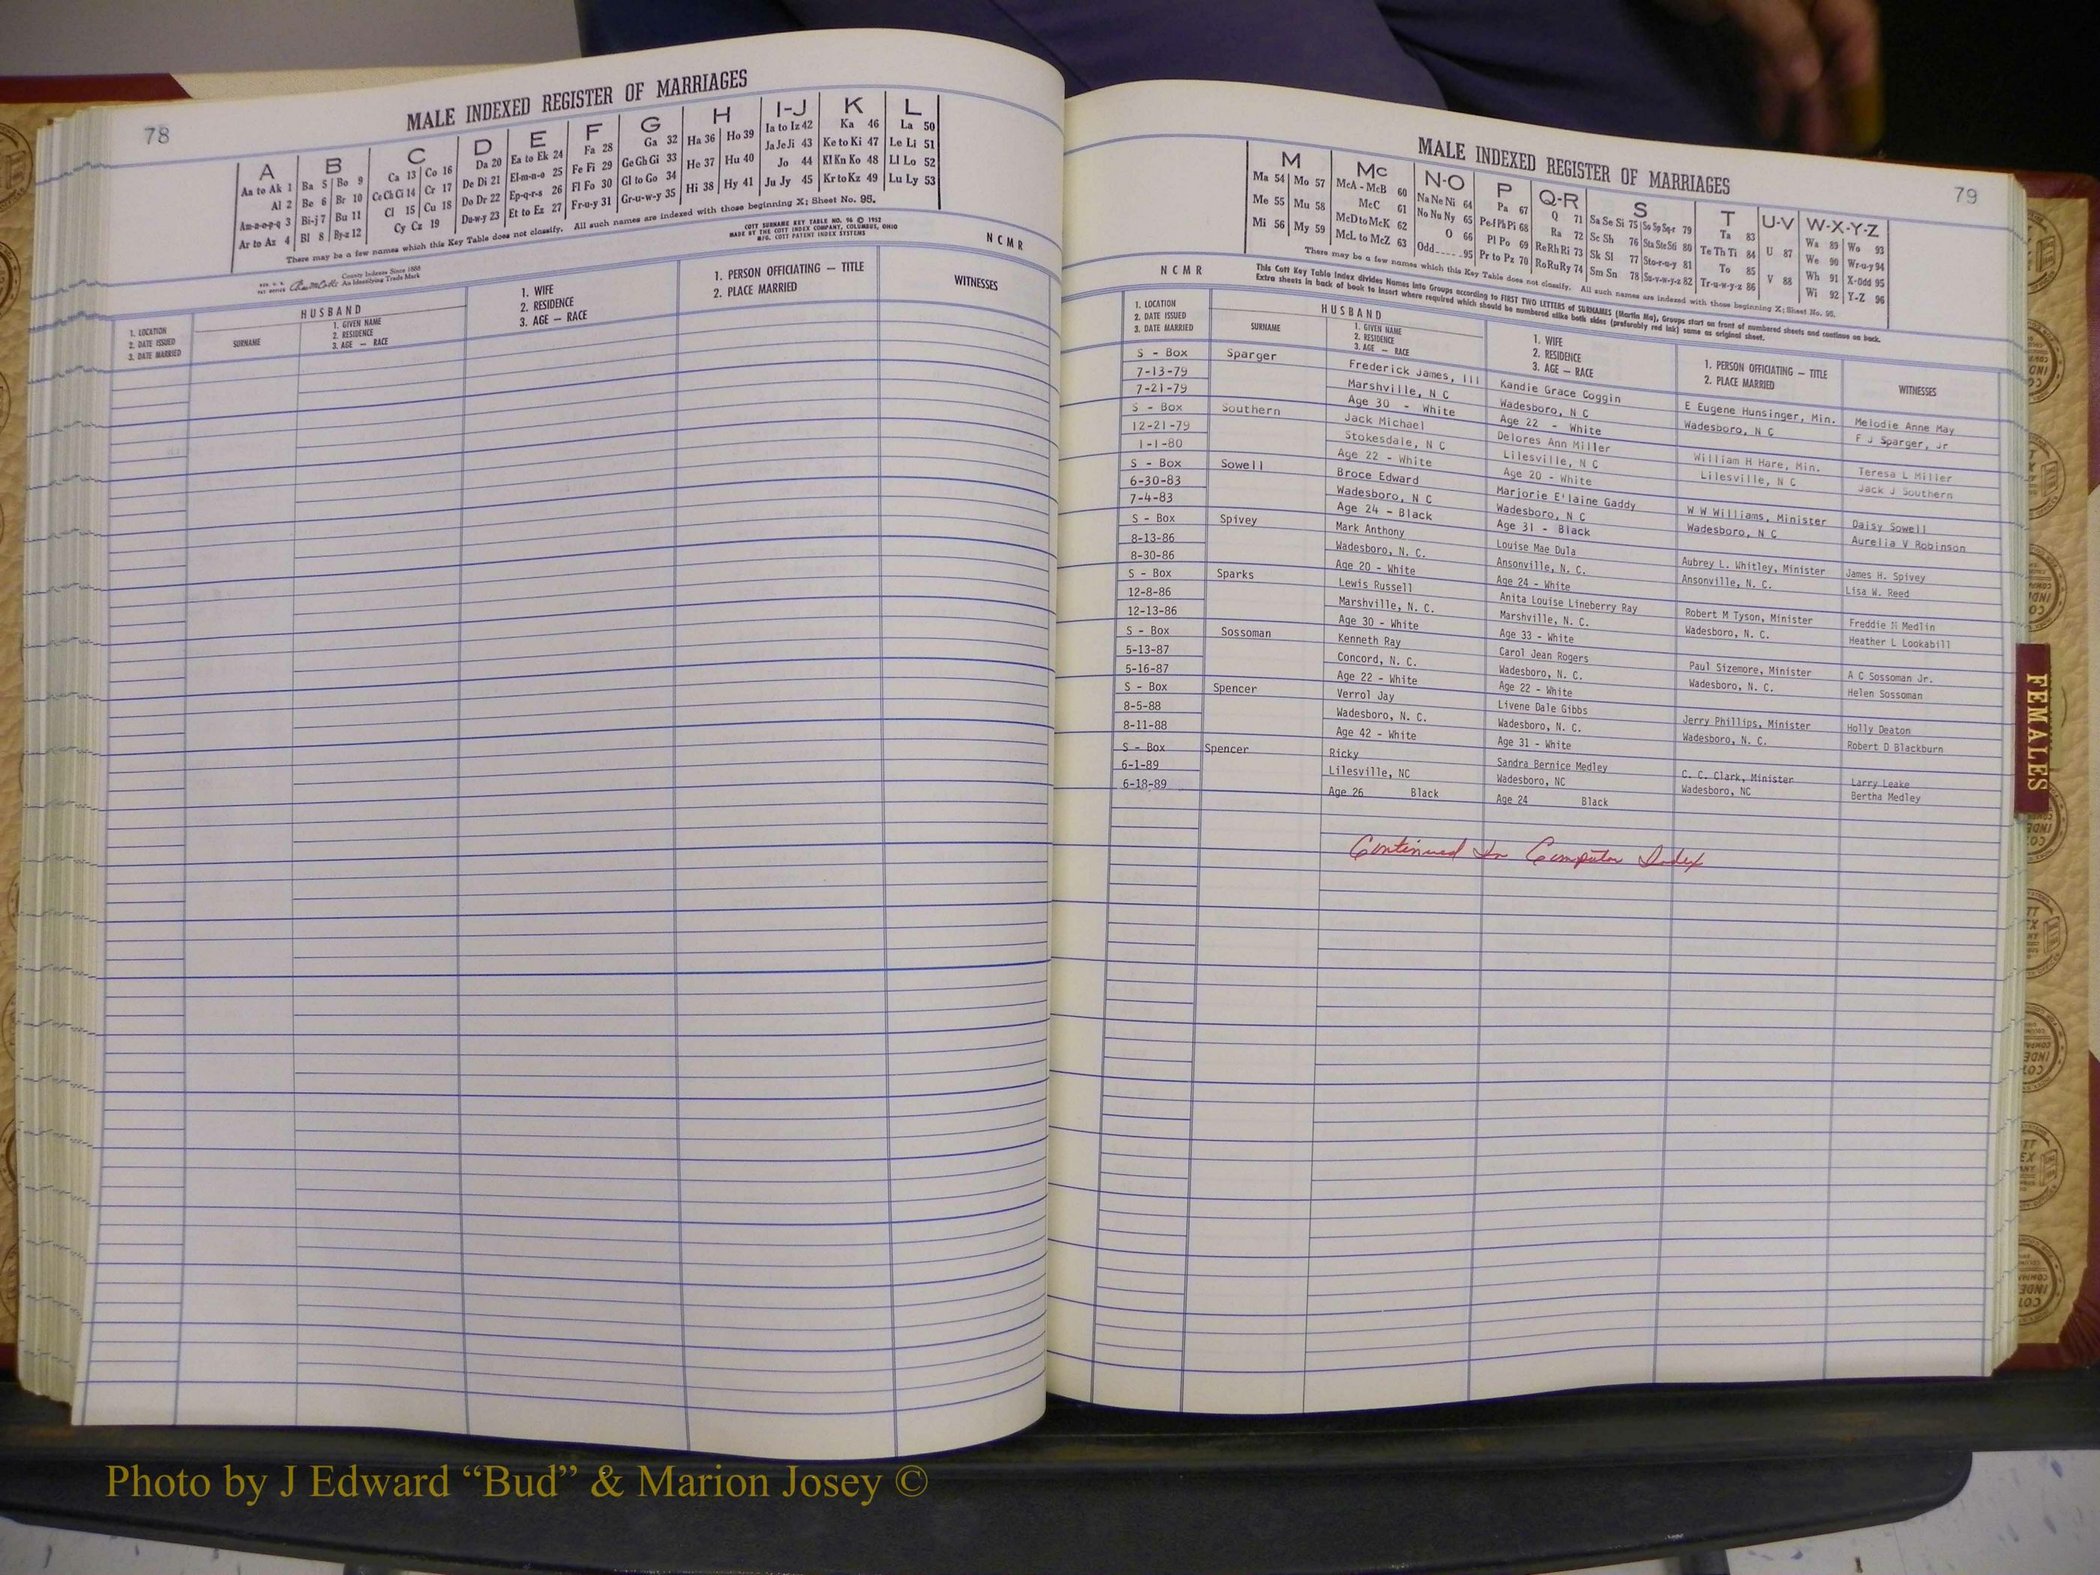 78
MALE INDEXED REGISTER OF MARRIAGES
A B C D E F G H I-J K L
Aa to Ak 1 Ba 5 Bo 9 Ca 13 Co 16 Da 20 Ea to Ek 24 Fa 28 Ga 32 Ha 36 Ho 39 Ia to Iz 42 Ka 46 La 50
Al 2 Be 6 Br 10 Ce Ch Ci 14 Cr 17 De Di 21 El-m-n-o 25 Fe Fi 29 Ge Gh Gi 33 He 37 Hu 40 Ja Je Ji 43 Ke to Ki 47 Le Li 51
Am-n-o-p-q 3 Bi-j 7 Bu 11 Cl 15 Cu 18 Do Dr 22 Ep-q-r-s 26 Fl Fo 30 Gl to Go 34 Hi 38 Hy 41 Jo 44 Kl Kn Ko 48 Ll Lo 52
Ar to Az 4 Bl 8 By-z 12 Cy Cz 19 Du-w-y 23 Et to Ez 27 Fr-u-y 31 Gr-u-w-y 35 Ju Jy 45 Kr to Kz 49 Lu Ly 53
There may be a few names which this Key Table does not classify. All such names are indexed with those beginning X; Sheet No. 95.
COTT SURNAME KEY TABLE NO. 96 © 1952
MADE BY THE COTT INDEX COMPANY, COLUMBUS, OHIO
MFG. COTT PATENT INDEX SYSTEMS
County Indexes Since 1888
An Identifying Trade Mark
N C M R
HUSBAND
1. LOCATION
2. DATE ISSUED
3. DATE MARRIED
SURNAME
1. GIVEN NAME
2. RESIDENCE
3. AGE — RACE
1. WIFE
2. RESIDENCE
3. AGE — RACE
1. PERSON OFFICIATING — TITLE
2. PLACE MARRIED
WITNESSES
79
MALE INDEXED REGISTER OF MARRIAGES
M Mc N-O P Q-R S T U-V W-X-Y-Z
Ma 54 Mo 57 McA - McB 60 Na Ne Ni 64 Pa 67 Q 71 Sa Se Si 75 So Sp Sq-r 79 Ta 83 U 87 Wa 89 Wo 93
Me 55 Mu 58 McC 61 No Nu Ny 65 Pe-f Ph Pi 68 Ra 72 Sc Sh 76 Sta Ste Sti 80 Te Th Ti 84 V 88 We 90 Wr-u-y 94
Mi 56 My 59 McD to McK 62 O 66 Pl Po 69 Re Rh Ri 73 Sk Sl 77 Sto-r-u-y 81 To 85 Wh 91 X-Odd 95
McL to McZ 63 Odd 95 Pr to Pz 70 Ro Ru Ry 74 Sm Sn 78 Su-v-w-y-z 82 Tr-u-w-y-z 86 Wi 92 Y-Z 96
There may be a few names which this Key Table does not classify. All such names are indexed with those beginning X; Sheet No. 95.
N C M R
This Cott Key Table Index divides Names into Groups according to FIRST TWO LETTERS of SURNAMES (Martin Ma), Groups start on front of numbered sheets and continue on back.
Extra sheets in back of book to insert where required which should be numbered alike both sides (preferably red ink) same as original sheet.
HUSBAND
1. LOCATION
2. DATE ISSUED
3. DATE MARRIED
SURNAME
1. GIVEN NAME
2. RESIDENCE
3. AGE — RACE
1. WIFE
2. RESIDENCE
3. AGE — RACE
1. PERSON OFFICIATING — TITLE
2. PLACE MARRIED
WITNESSES
S - Box Sparger Frederick James, III Kandie Grace Coggin E Eugene Hunsinger, Min. Melodie Anne May
7-13-79 Marshville, N C Wadesboro, N C Wadesboro, N C F J Sparger, Jr
7-21-79 Age 30 - White Age 22 - White
S - Box Southern Jack Michael Delores Ann Miller William H Hare, Min. Teresa L Miller
12-21-79 Stokesdale, N C Lilesville, N C Lilesville, N C Jack J Southern
1-1-80 Age 22 - White Age 20 - White
S - Box Sowell Broce Edward Marjorie E'laine Gaddy W W Williams, Minister Daisy Sowell
6-30-83 Wadesboro, N C Wadesboro, N C Wadesboro, N C Aurelia V Robinson
7-4-83 Age 24 - Black Age 31 - Black
S - Box Spivey Mark Anthony Louise Mae Dula Aubrey L. Whitley, Minister James H. Spivey
8-13-86 Wadesboro, N. C. Ansonville, N. C. Ansonville, N. C. Lisa W. Reed
8-30-86 Age 20 - White Age 24 - White
S - Box Sparks Lewis Russell Anita Louise Lineberry Ray Robert M Tyson, Minister Freddie N Medlin
12-8-86 Marshville, N. C. Marshville, N. C. Wadesboro, N. C. Heather L Lookabill
12-13-86 Age 30 - White Age 33 - White
S - Box Sossoman Kenneth Ray Carol Jean Rogers Paul Sizemore, Minister A C Sossoman Jr.
5-13-87 Concord, N. C. Wadesboro, N. C. Wadesboro, N. C. Helen Sossoman
5-16-87 Age 22 - White Age 22 - White
S - Box Spencer Verrol Jay Livene Dale Gibbs Jerry Phillips, Minister Holly Deaton
8-5-88 Wadesboro, N. C. Wadesboro, N. C. Wadesboro, N. C. Robert D Blackburn
8-11-88 Age 42 - White Age 31 - White
S - Box Spencer Ricky Sandra Bernice Medley C. C. Clark, Minister Larry Leake
6-1-89 Lilesville, NC Wadesboro, NC Wadesboro, NC Bertha Medley
6-18-89 Age 26 Black Age 24 Black
Continued In Computer Index
FEMALES
Photo by J Edward “Bud” & Marion Josey ©